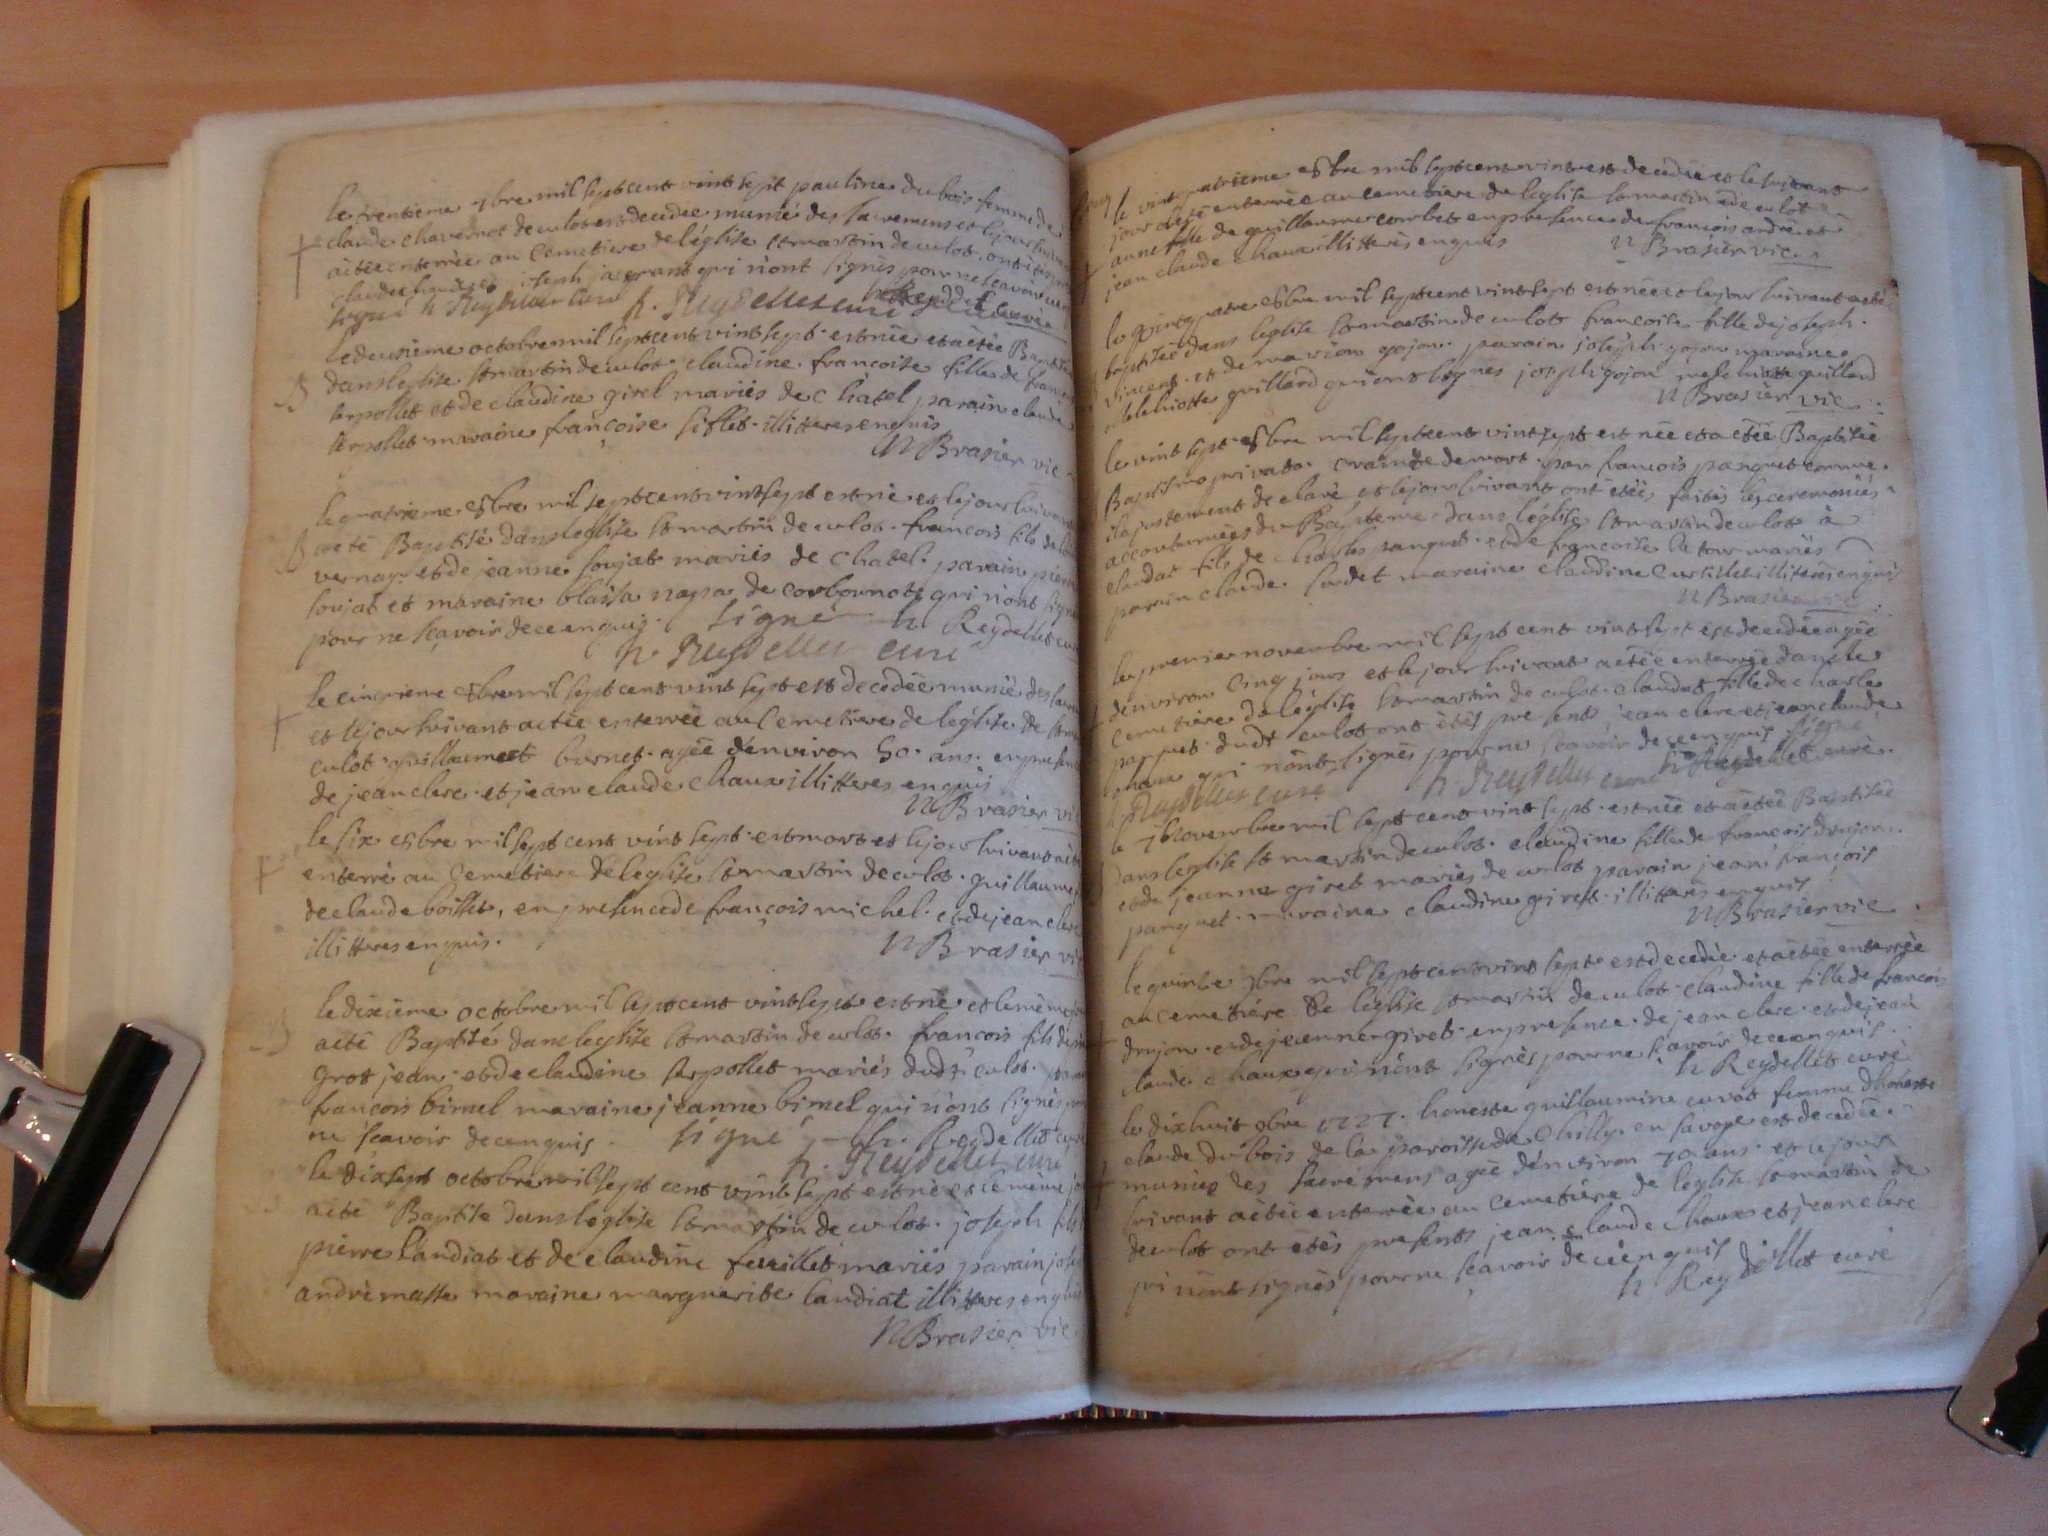 le trentieme 7bre mil sept cent vint sept pauline du bois femme de
claude chavernot de culot est decedee munie des sacremens et le jour suivant
a étée enterrée au cemetiere de léglise st martin de culot. ont étés
claude joseph qui n'ont signés pour ne sçavoir
signé h Reydellet curé h. Reydellet curé
le deusieme octobre mil sept cent vint sept est née et a étée Baptisée
dans leglise st martin de culot. claudine francoise fille de francois
serpollet et de claudine girel mariés de chatel parain claude
serpollet maraine françoise siflet illitteres enquis
N Brasier vic
le quatrieme 8bre mil sept cent vint sept est né et le jour suivant
a eté Baptisé dans leglise st martin de culot. francois fils de
vernay et de jeanne soujat mariés de chatel. parain pierre
soujat et maraine blaisa de corbonot qui n'ont signé
pour ne sçavoir de ce enquis. signé h Reydellet curé
h. Reydellet curé
le cinqieme 8bre mil sept cent vint sept est decedée munie des sacre
et le jour suivant a étée enterrée au cemetiere de léglise de st martin
culot guillaumett burnet agée d'environ 50. ans. en presence
de jean clerc et jean claude chaux illitteres enquis
N Brasier vic
le six 8bre mil sept cent vint sept est mort et le jour suivant a été
enterré au cemetiere de leglise st martin de culot. guillaume
de claude boillet, en presence de françois michel. et de jean clerc
illitteres enquis. N Brasier vic
le dixieme octobre mil sept cent vint sept est né et le même jour
a été Baptisé dans leglise st martin de culot. francois fils de
gros jean et de claudine serpollet mariés dudt culot.
francois bimel maraine jeanne bimel qui n'ont signés
ne scavoir de ce enquis. signé h. Reydellet curé
h. Reydellet curé
le dix sept octobre mil sept cent vint sept est né et le même jour
a eté Baptisé dans leglise st martin de culot. joseph fils
pierre landiat et de claudine feuillet mariés parain joseph
andré masse maraine marguerite landiat illitteres enquis
N Brasier vic
le vint quatrieme 8bre mil sept cent vint est decedée et le suivant
jour a été enterrée au cemetiere de leglise st martin de culot
anne fille de guillaume corbet en presence de francois andré et
jean claude chaux illitterés enquis N Brasier vic.
le vint quatre 8bre mil sept cent vint sept est née et le jour suivant a été
baptisée dans leglise st martin de culot francoise fille de joseph
vincent et de marion gojon. parain joseph gojon maraine
guillard qui ont signés joseph gojon guillard
N Brasier vic.
le vint sept 8bre mil sept cent vint sept est née et a étée Baptisée
Baptismo privato. crainte de mort. par francois panquet comme
il a justement declaré et le jour suivant ont étées faites les ceremoniés
accoutumées du Bapteme dans léglise st martin de culot à
claudat fils de charles panquet et de francoise la tour mariés
parain claude sudet maraine claudine illiterés enquis
N Brasier vic
le premier novembre mil sept cent vint sept est decedée agée
denviron cinq jours et le jour suivant a étée enterrée dans le
cemetiere de léglise st martin de culot claudat fille de charle
panquet dudt culot ont étés presents jean clerc et jean claude
chaux qui n'ont signés pour ne scavoir de ce enquis signé
h. Reydellet curé h Reydellet curé h Reydellet curé.
le 7 novembre mil sept cent vint sept est née et a étée Baptisée
dans leglise st martin de culot. claudine fille de francois dujon.
et de jeanne giret mariés de culot parain jean françois
panquet maraine claudine giret illitterés enquis
N Brasier vic
le quinze 9bre mil sept cent vint sept est decedée et a étée enterrée
au cemetiére de leglise st martin de culot claudine fille de francois
dujon et de jeanne giret en presence de jean clerc et de jean
claude chaux qui n'ont signés pour ne scavoir de ce enquis.
h Reydellet curé
le dix huit 9bre 1727. honeste guillaumine curat femme dhoneste
claude du bois de la paroisse de chilly en savoye est decedée
munies des sacremens agée d'environ 70 ans et le jour
suivant a étée enterrée au cemetiére de leglise st martin de
de culot ont etés presents jean claude chaux et jean clerc
qui n'ont signés pour ne sçavoir de ce enquis
h Reydellet curé